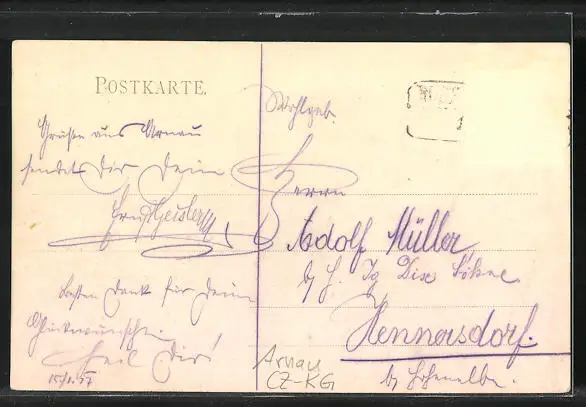 POSTKARTE.
Grüße aus Arnau
sendet Dir Dein
Ernst Geisler
Besten Dank für Deine
Glückwünsche.
Heil Dir!
Wohlgeb.
Herrn
Adolf Müller,
by J. Dix Söhne
Hennersdorf.
by Hohenelbe.
Arnau
CZ-KG